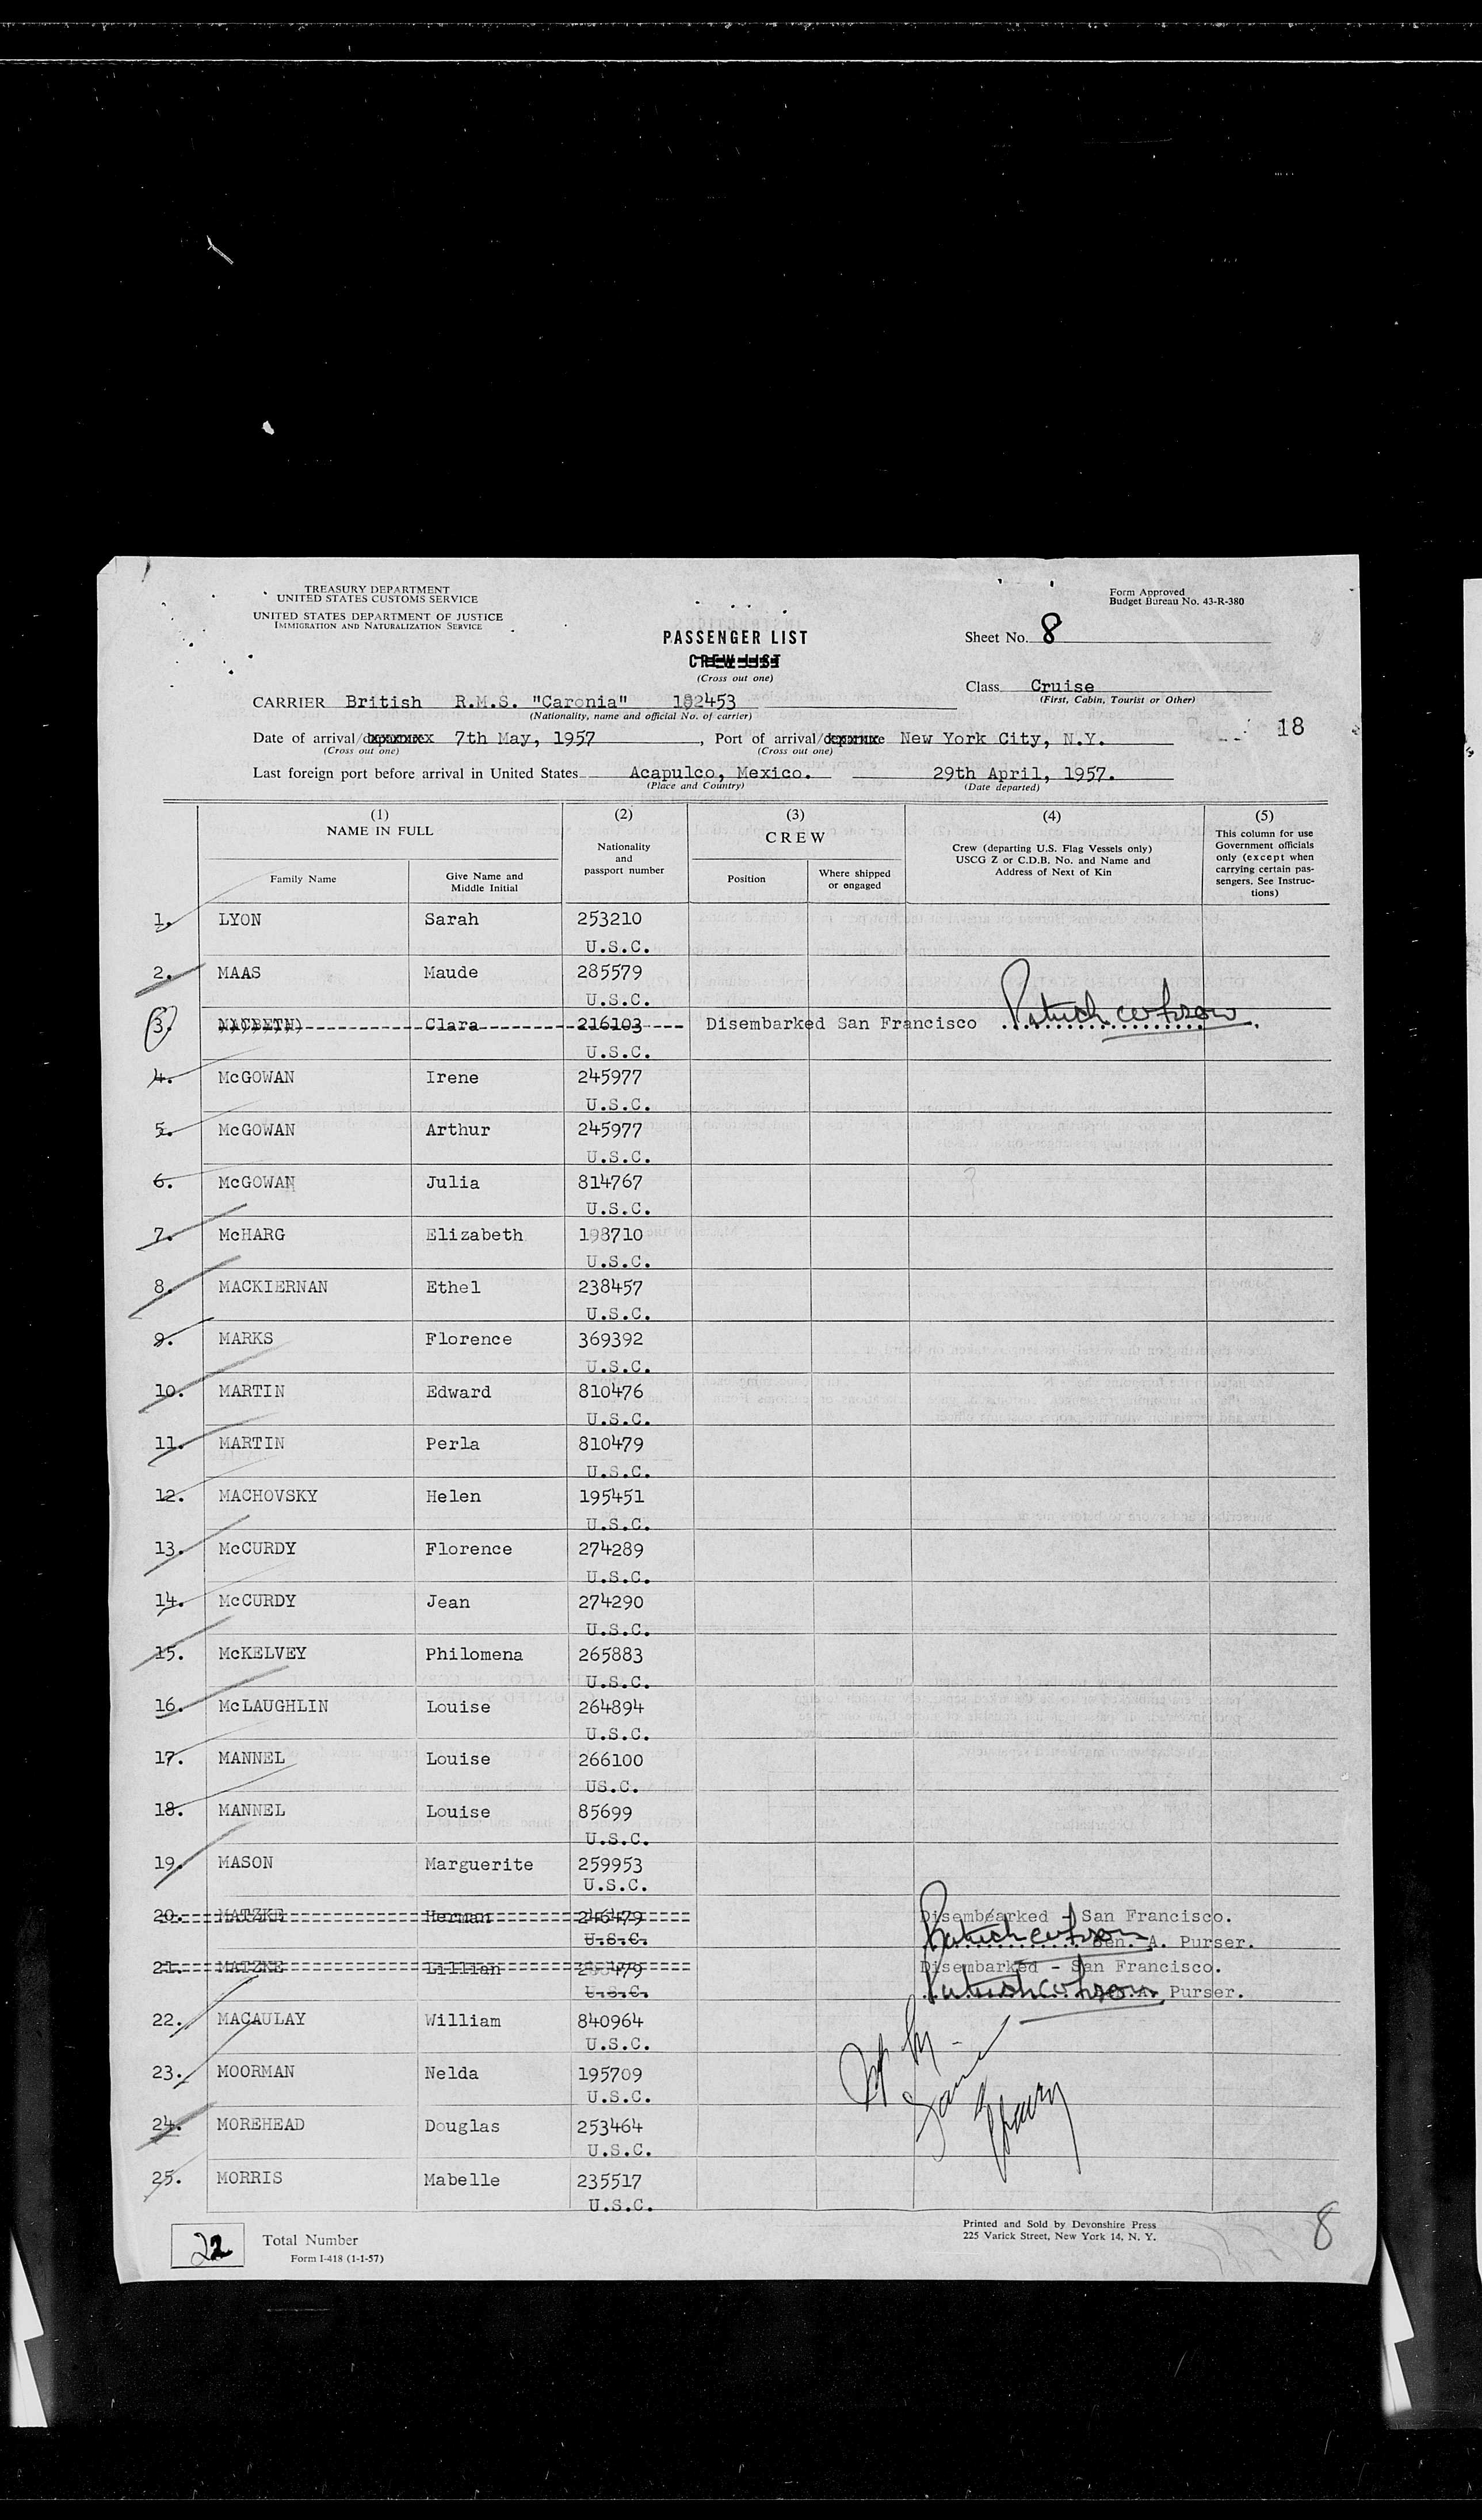 TREASURY DEPARTMENT
UNITED STATES CUSTOMS SERVICE
UNITED STATES DEPARTMENT OF JUSTICE
IMMIGRATION AND NATURALIZATION SERVICE
Form Approved
Budget Bureau No. 43-R-380
PASSENGER LIST
CREW LIST
(Cross out one)
Sheet No. 8
Class Cruise
(First, Cabin, Tourist or Other)
CARRIER British R.M.S. "Caronia" 182453
(Nationality, name and official No. of carrier)
18
Date of arrival/ 7th May, 1957, Port of arrival/ New York City, N.Y.
(Cross out one) (Cross out one)
Last foreign port before arrival in United States Acapulco, Mexico. 29th April, 1957.
(Place and Country) (Date departed)
(1) NAME IN FULL
Family Name
Give Name and Middle Initial
(2) Nationality and passport number
(3) CREW
Position
Where shipped or engaged
(4) Crew (departing U.S. Flag Vessels only) USCG Z or C.D.B. No. and Name and Address of Next of Kin
(5) This column for use Government officials only (except when carrying certain passengers. See Instructions)
1. LYON Sarah 253210
U.S.C.
2. MAAS Maude 285579
U.S.C.
3. MACBETH Clara 216103 Disembarked San Francisco
U.S.C.
4. McGOWAN Irene 245977
U.S.C.
5. McGOWAN Arthur 245977
U.S.C.
6. McGOWAN Julia 814767
U.S.C.
7. McHARG Elizabeth 198710
U.S.C.
8. MACKIERNAN Ethel 238457
U.S.C.
9. MARKS Florence 369392
U.S.C.
10. MARTIN Edward 810476
U.S.C.
11. MARTIN Perla 810479
U.S.C.
12. MACHOVSKY Helen 195451
U.S.C.
13. McCURDY Florence 274289
U.S.C.
14. McCURDY Jean 274290
U.S.C.
15. McKELVEY Philomena 265883
U.S.C.
16. McLAUGHLIN Louise 264894
U.S.C.
17. MANNEL Louise 266100
US.C.
18. MANNEL Louise 85699
U.S.C.
19. MASON Marguerite 259953
U.S.C.
20. MATZKE Herman 246479 Disembearked - San Francisco.
U.S.C. Sen. A. Purser.
21. MATZKE Lillian Disembarked - San Francisco.
U.S.C. A. Purser.
22. MACAULAY William 840964
U.S.C.
23. MOORMAN Nelda 195709
U.S.C.
24. MOREHEAD Douglas 253464
U.S.C.
25. MORRIS Mabelle 235517
U.S.C.
22 Total Number
Form I-418 (1-1-57)
Printed and Sold by Devonshire Press
225 Varick Street, New York 14, N. Y.
8